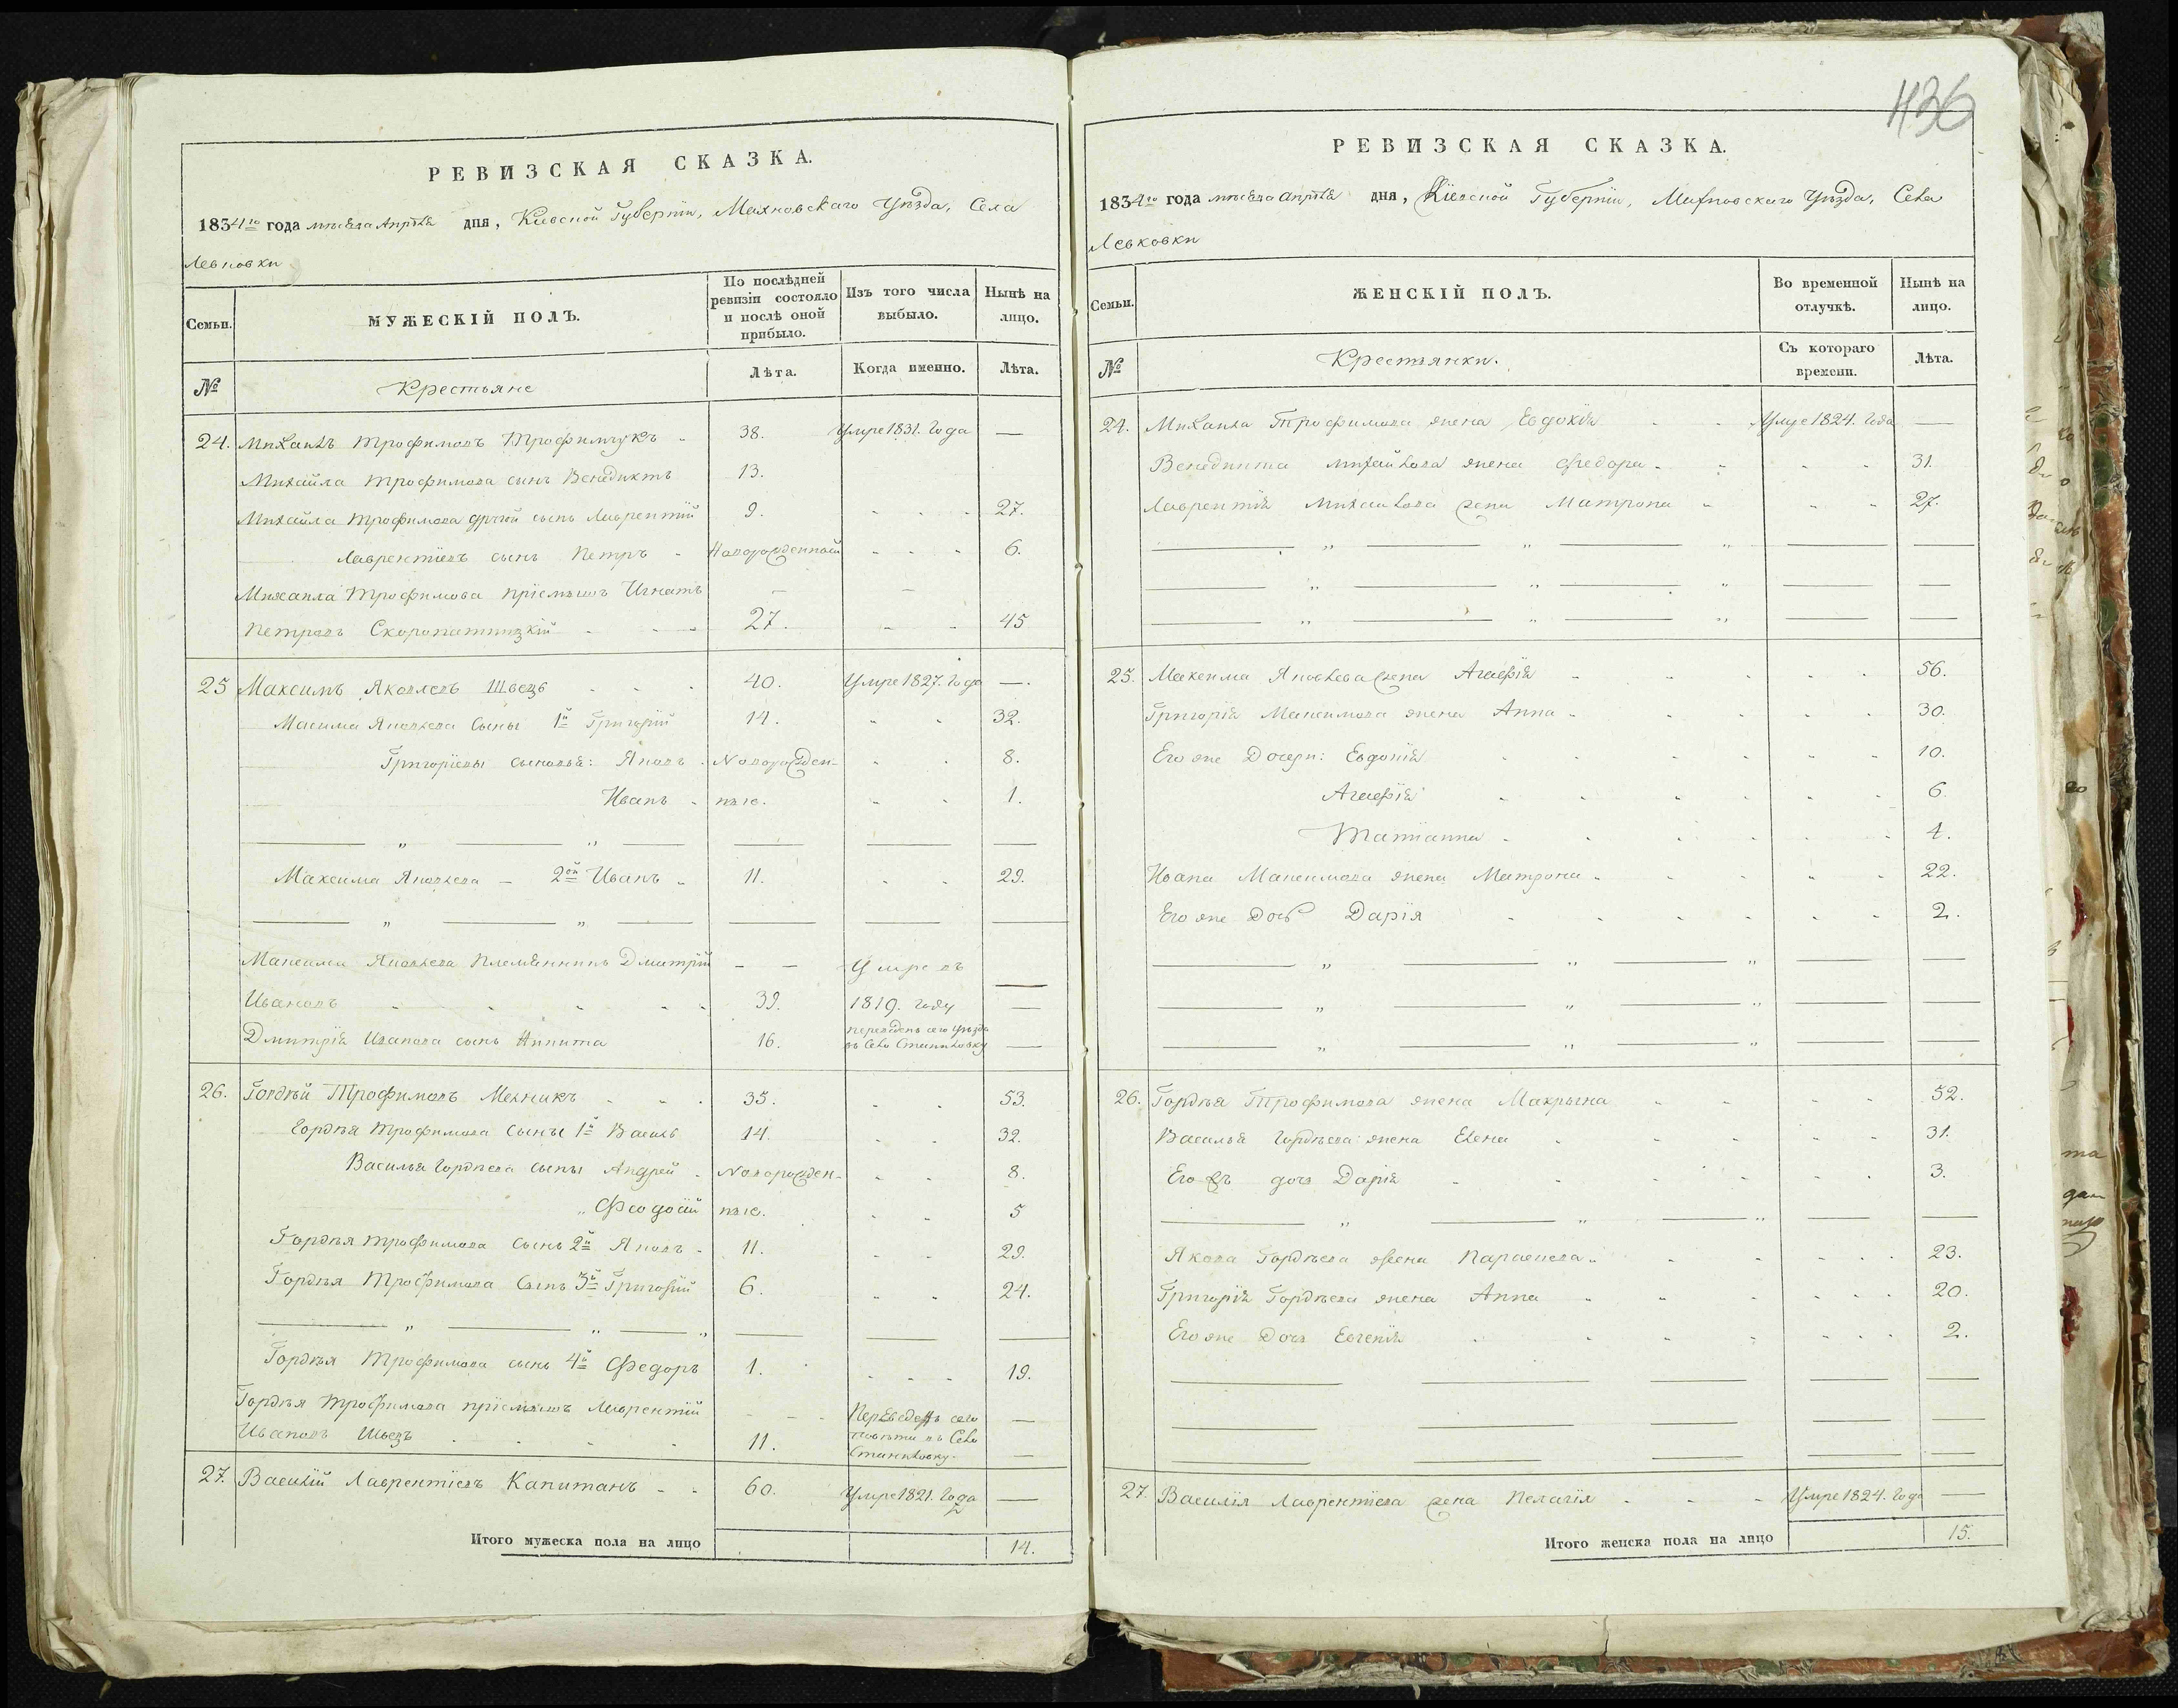 РЕВИЗСКАЯ СКАЗКА.
1834го года мѣсяца Апрѣля дня, Кіевской Губерніи, Махновскаго Уѣзда, Села
Левковки
Семьи.
МУЖЕСКІЙ ПОЛЪ.
По послѣдней ревизіи состояло и послѣ оной прибыло.
Изъ того числа выбыло.
Нынѣ на лицо.
№
Крестьяне
Лѣта.
Когда именно.
Лѣта.
24. Михаилъ Трофимовъ Трофимчукъ 38. Умре 1831. Года —
Михайла Трофимова сынъ Венедиктъ 13.
Михайла Трофимова другой сынъ Лаврентій 9. 27.
Лаврентіевъ сынъ Петръ Новорожденный 6.
Михаила Трофимова пріемышъ Игнатъ — —
Петровъ 27. 45
25 Максимъ Яковлевъ Швецъ 40. Умре 1827. Года —.
Масима Яковлева Сыны 1й Григорій 14. 32.
Григоріевы сыновья: Яковъ Новорожден- 8.
Иванъ ные. 1.
Максима Яковлева — 2ой Иванъ 11. 29.
Максима Яковлева Племянникъ Дмитрій — — Умре въ —
Ивановъ 39. 1819. году —
Дмитрія Иванова сынъ Никита 16. переведенъ сего Уѣзда въ Село —
26. Гордѣй Трофимовъ Мельникъ 35. 53.
Гордѣя Трофимова Сыны 1й Василь 14. 32.
Василья Гордѣева сыны Андрей Новорожден- 8.
„ Феодосій ные. 5
Гордѣя Трофимова Сынъ 2й Яковъ 11. 29.
Гордѣя Трофимова Сынъ 3й Григорій 6. 24.
Гордѣя Трофимова сынъ 4й Федоръ 1. 19.
Гордѣя Трофимова пріемышъ Лаврентій Переведенъ сего —
Ивановъ Швецъ 11. повѣта въ Село —
27. Василій Лаврентіевъ Капитанъ 60. Умре 1821. Года —
Итого мужеска пола на лицо 14.
1136
РЕВИЗСКАЯ СКАЗКА.
1834го года мѣсяца Апрѣля дня, Кіевской Губерніи, Махновскаго Уѣзда, Села
Левковки
Семьи.
ЖЕНСКІЙ ПОЛЪ.
Во временной отлучкѣ.
Нынѣ на лицо.
№
Крестьянки.
Съ котораго времени.
Лѣта.
24. Михаила Трофимова жена Евдокія Умре 1824. Года —
Венедикта Михайлова жена Федора 31.
Лаврентія Михаилова жена Матрона 27.
25. Максима Яковлева жена Агафія 56.
Григорія Максимова жена Анна 30.
Его же Дочери: Евдокія 10.
Агафія 6.
Татіанна 4.
Ивана Максимова жена Матрона 22.
Его же Дочь Дарія 2.
26. Гордѣя Трофимова жена Макрына 52.
Василья Гордѣева жена Елена 31.
Его жъ дочь Дарія 3.
Якова Гордѣева жена Параскева 23.
Григорія Гордѣева жена Анна 20.
Его же Дочь Евгенія 2.
27. Василія Лаврентіева жена Пелагія Умре 1824. Года —
Итого женска пола на лицо 15.